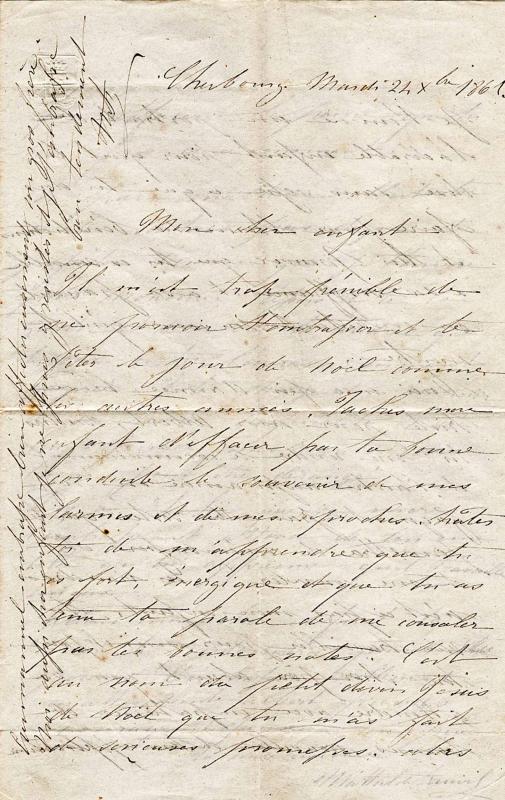 Cherbourg Mardi 24 Xbre 186
Mon cher enfant
Il m'est trop pénible de
ne pouvoir t'embrasser et te
fêter le jour de Noël comme
les autres années. Tâches mon
enfant d'effacer par ta bonne
conduite le souvenir de mes
larmes et de mes proches, hâtes
toi de m'apprendre que tu
es fort, énergique et que tu as
tenu ta parole de me consoler
par tes bonnes notes. C'est
au nom du petit divin Jésus
de Noël que tu m'as fait
de sérieuses promesses. alors
embrasse bien affectueusement son gros frère
Mon cher enfant
bien tendrement